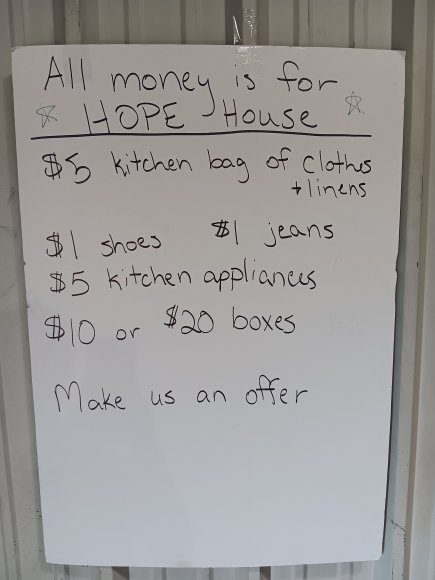 All money is for
HOPE House
$5 kitchen bag of clothes
+ linens
$1 shoes $1 jeans
$5 kitchen appliances
$10 or $20 boxes
Make us an offer